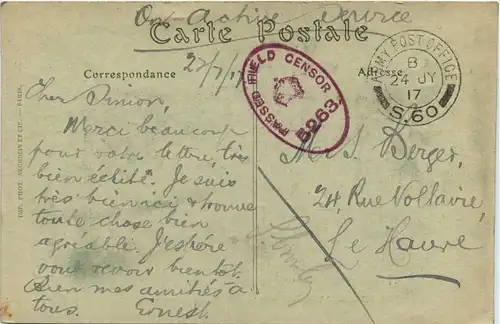 On Active Service
Carte Postale
Correspondance
Adresse
22/7/17
PASSED FIELD CENSOR
5263
ARMY POST OFFICE
B
24 JY
17
S.60
Cher Simon,
Merci beaucoup
pour votre lettre, très
bien écrite. Je suis
très bien ici & trouve
toute chose bien
agréable. J'espère
vous revoir bientôt.
Bien mes amitiés à
tous. Ernest.
S. Berger,
24, Rue Voltaire,
Le Havre
IMP. PHOT.
PARIS.